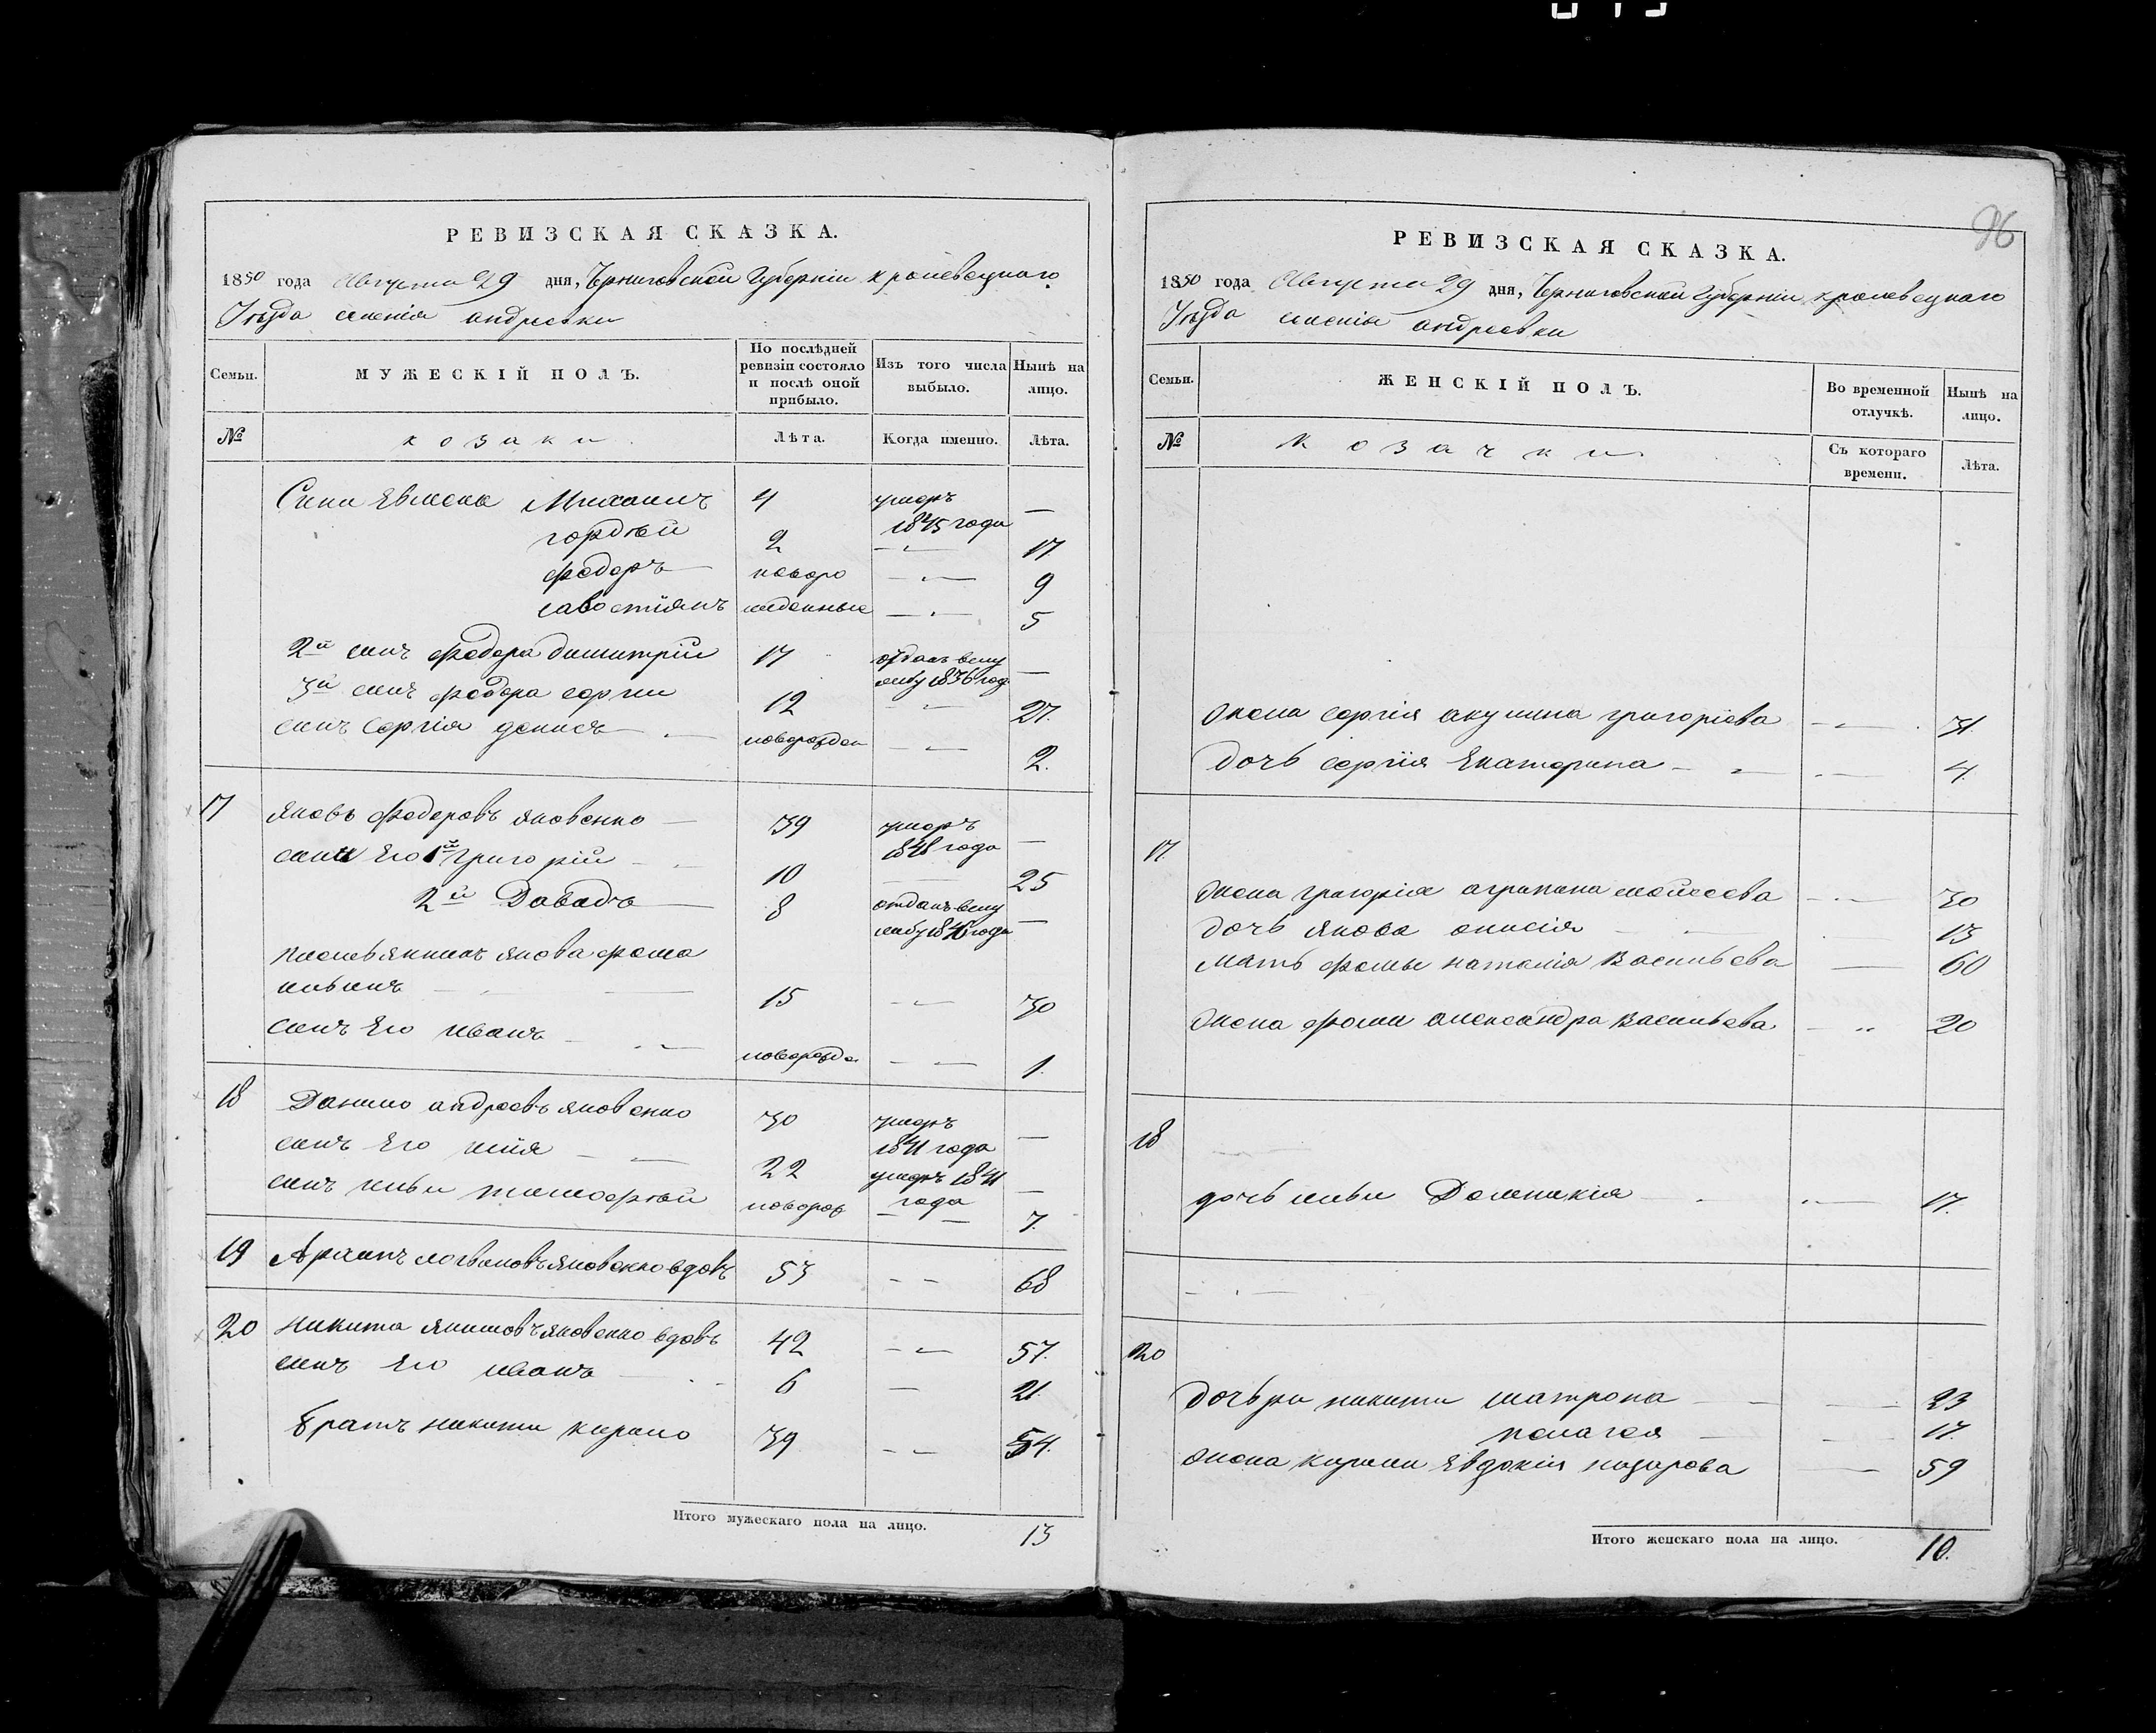 РЕВИЗСКАЯ СКАЗКА.
1850 года Августа 29 дня, Черниговской Губерніи кролевецкаго
Уезда селенія андреевки
Семьи. МУЖЕСКІЙ ПОЛЪ. По послѣдней ревизіи состояло и послѣ оной прибыло. Изъ того числа выбыло. Нынѣ на лицо.
№ козаки. Лѣта. Когда именно. Лѣта.
Сини Евмена Михаилъ 4 умеръ 1845 года —
гордѣй 2 — 17
федоръ новоро — 9
савостіянъ жденные — 5
2й синъ федора димитрій 17 отданъ в службу 1836 год —
3й синъ федора сергій 12 — 27.
синъ Сергія денисъ новорожден — 2.
17 яковъ федоровъ яковенко 39 умеръ 1848 года —
сини Его 1й Григорій 10 — 25
2й Давадъ 8 отданъ в службу 1846 года —
племьянникъ якова фома
ильинъ 15 — 30
синъ Его иванъ новорожде — 1
18 Данило андреевъ яковенко 30 умеръ 1841 года —
синъ Его илія 22 умеръ 1841 года —
синъ ильи тимофѣй новорож — 7.
19 Архипъ логвиновъ яковенко вдовъ 53 — 68
20 никита якимовъ яковенко вдовъ 42 — 57.
синъ Его иванъ 6 — 21
братъ никити кирило 39 — 54.
Итого мужескаго пола на лицо. 13
96
РЕВИЗСКАЯ СКАЗКА.
1850 года Августа 29 дня, Черниговской Губерніи кролевецкаго
Уезда селенія андреевки
Семьи. ЖЕНСКІЙ ПОЛЪ. Во временной отлучкѣ. Нынѣ на лицо.
№ Козачки Съ котораго времени. Лѣта.
жена сергія акулина григоріева — 31.
дочь сергія Екатерина — 4.
17.
жена григорія агрипина моисеева — 30
дочь якова анисія — 13
мать фомы наталія Васильева — 60
жена фоми александра Васильева — 20
18
дочь ильи Домникія — 17.
20
дочьри никити матрона — 23
пелагея — 17.
жена кирили Евдокія назарова — 59
Итого женскаго пола на лицо. 10.